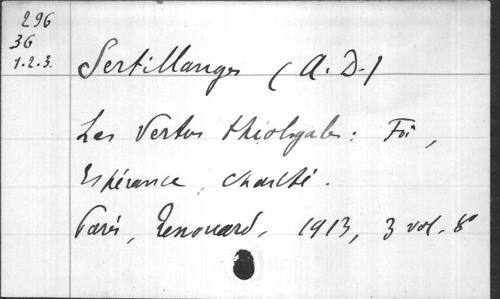 296
36
1.2.3.
Sertillanges (A.D.)
Les Vertus théologales : Foi,
Espérance, Charité.
Paris, Renouard, 1913, 3 vol. 8°